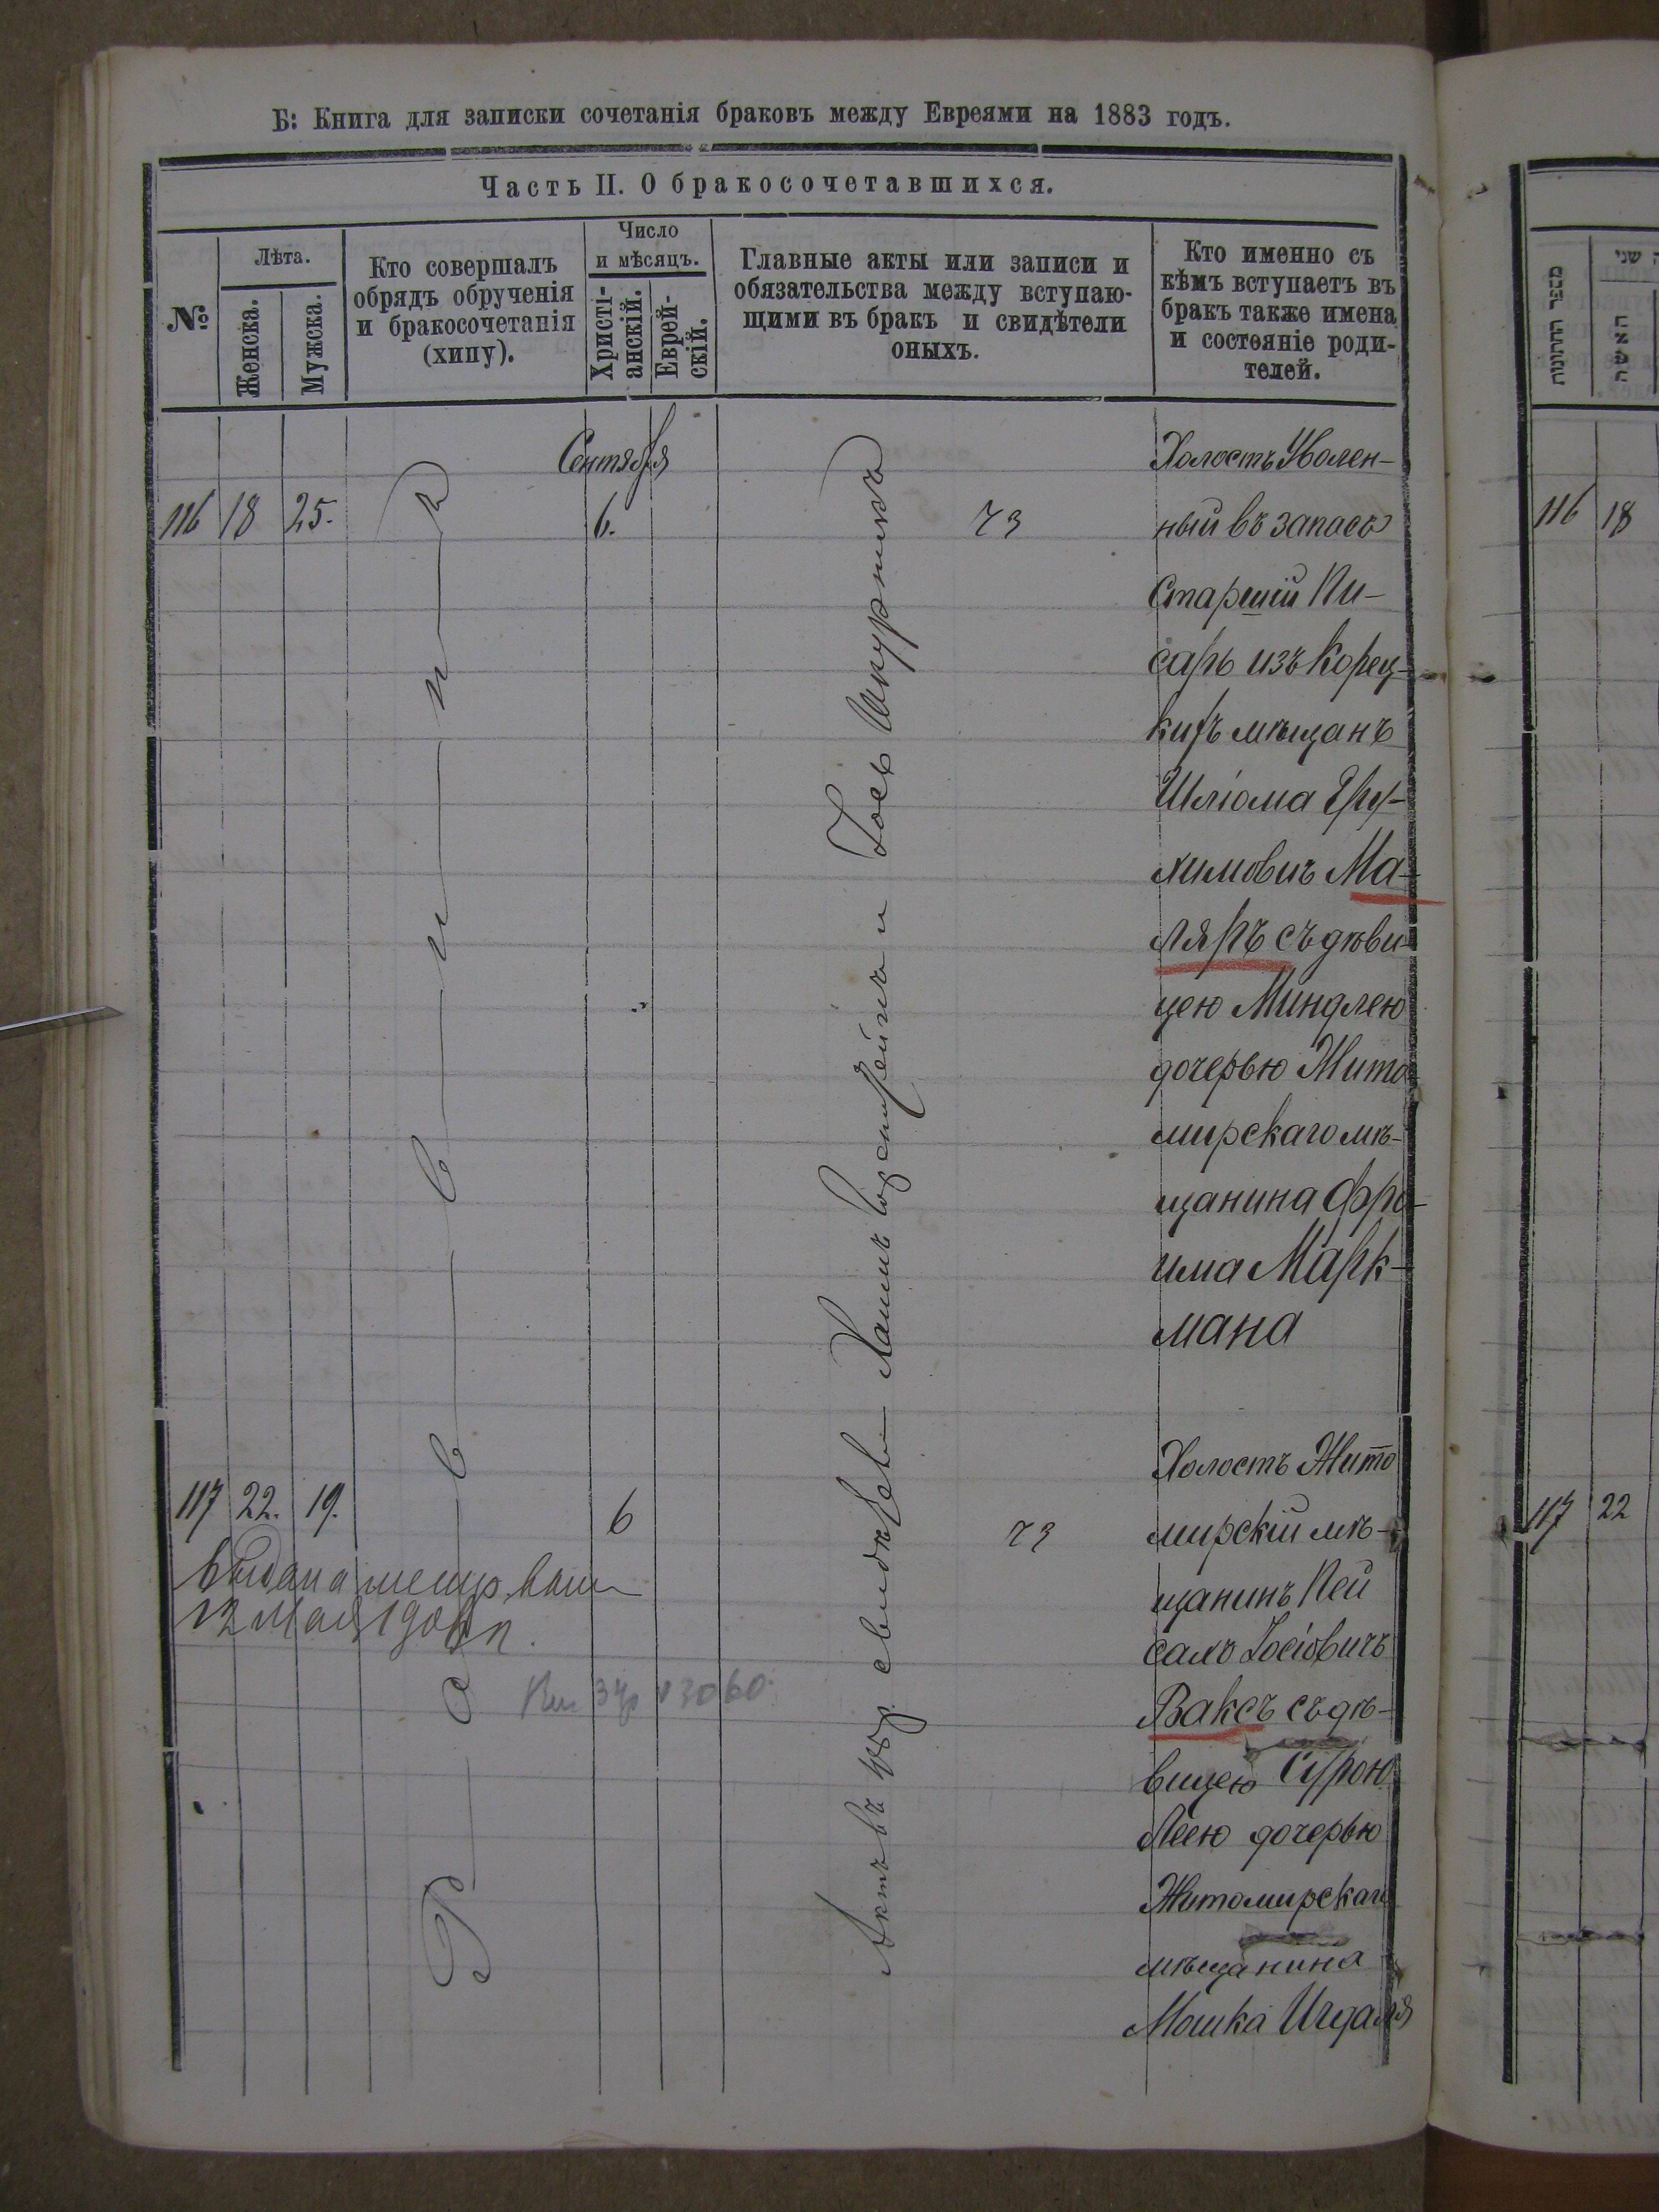 Б: Книга для записки сочетанія браковъ между Евреями на 1883 годъ.
Часть II. О бракосочетавшихся.
№
Лѣта.
Женска.
Мужска.
Кто совершалъ
обрядъ обрученія
и бракосочетанія
(хипу).
Число
и мѣсяцъ.
Христі-
анскій.
Еврей-
скій.
Главные акты или записи и
обязательства между вступаю-
щими въ бракъ и свидѣтели
оныхъ.
Кто именно съ
кѣмъ вступаетъ въ
бракъ также имена
и состояніе роди-
телей.
Сентября
116 18 25.
6.
73
Холостъ Уволен-
ный въ запасъ
Старшій Пи-
сарь изъ Корец-
кихъ мѣщанъ
Шліома Еру-
химовичъ Ма-
ляръ съ дѣви-
цею Миндлею
дочерью Жито
мирскаго мѣ-
щанина Фро-
има Марк-
мана
117 22. 19.
6
73
Холостъ Жито
мирскій мѣ-
щанинъ Пей
сахъ Іосіовичъ
Ваксъ съ дѣ-
вицею Сурою
Леею дочерью
Житомирскаго
мѣщанина
Мошка Игдаля
12 мая
Іось Шкурникъ
מספר החתונות
האשה
שני
116 18
117 22